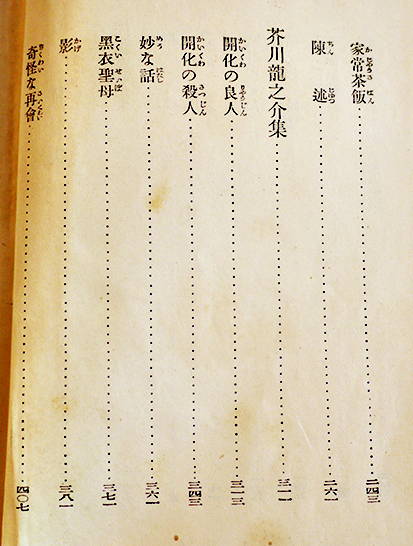 家常茶飯 二四三
陳述 二六一
芥川龍之介集 三一一
開化の良人 三一三
開化の殺人 三四三
妙な話 三六一
黑衣聖母 三七一
影 三八一
奇怪な再會 四〇七